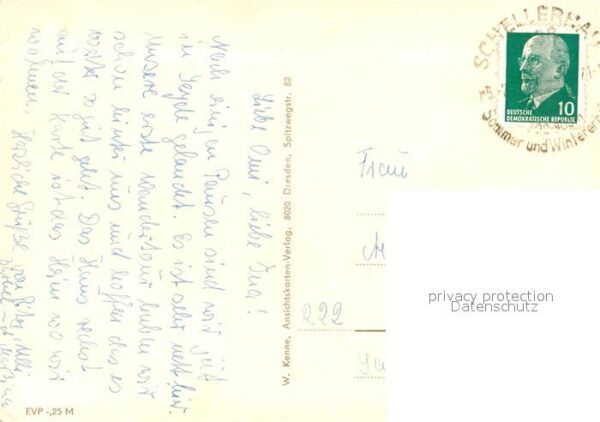 Liebe Omi, liebe Ina!
Nach einigen Pausen sind wir gut
in Seyde gelandet. Es ist sehr nett hier.
Unsere erste Wandertour haben wir
schon hinter uns und hoffen das es
weiter so gut geht. Das Haus rechts
auf der Karte ist das Heim wo wir
wohnen. Herzliche Grüße
EVP -,25 M
W. Kenne, Ansichtskarten-Verlag, 8020 Dresden, Spitzwegstr. 82
SCHELLERHAU
Sommer und Wintere
DEUTSCHE
DEMOKRATISCHE REPUBLIK
10
Frau
222
privacy protection
Datenschutz